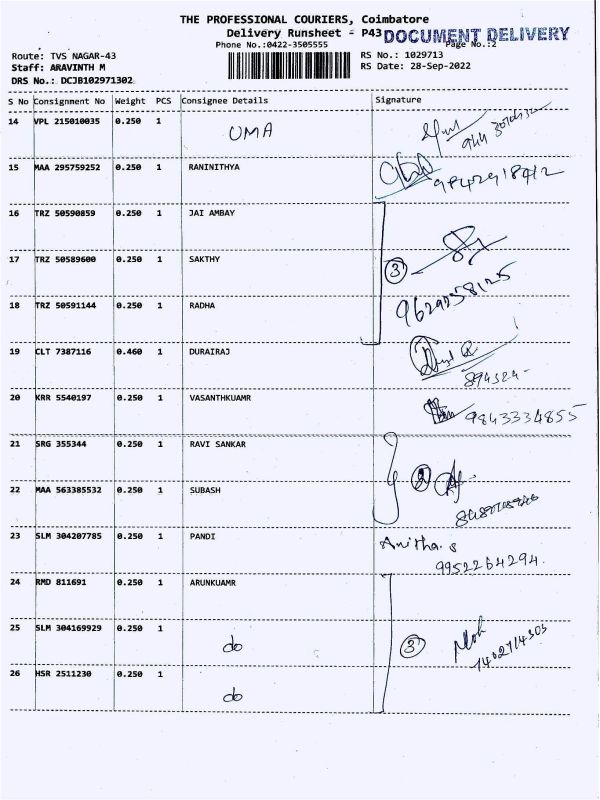 THE PROFESSIONAL COURIERS, Coimbatore
Delivery Runsheet - P43 DOCUMENT DELIVERY
Phone No.:0422-3505555 Page No.:2
Route: TVS NAGAR-43 RS No.: 1029713
Staff: ARAVINTH M RS Date: 28-Sep-2022
DRS No.: DCJB102971302
S No Consignment No Weight PCS Consignee Details Signature
14 VPL 215010035 0.250 1 UMA
15 MAA 295759252 0.250 1 RANINITHYA 9842918412
16 TRZ 50590859 0.250 1 JAI AMBAY
17 TRZ 50589600 0.250 1 SAKTHY 3
18 TRZ 50591144 0.250 1 RADHA 9629258125
19 CLT 7387116 0.460 1 DURAIRAJ
894324-
20 KRR 5540197 0.250 1 VASANTHKUAMR 9843334855
21 SRG 355344 0.250 1 RAVI SANKAR 2
22 MAA 563385532 0.250 1 SUBASH
23 SLM 304207785 0.250 1 PANDI Anitha. S
9952264294.
24 RMD 811691 0.250 1 ARUNKUAMR
25 SLM 304169929 0.250 1 do 3 7402714303
26 HSR 2511230 0.250 1 do